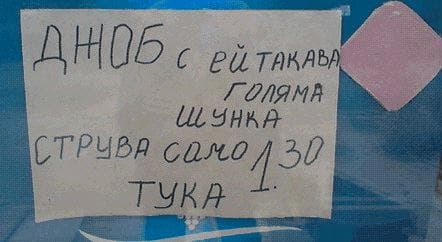 ДЖОБ С ЕЙ ТАКАВА
ГОЛЯМА
ШУНКА
СТРУВА САМО 1.30
ТУКА